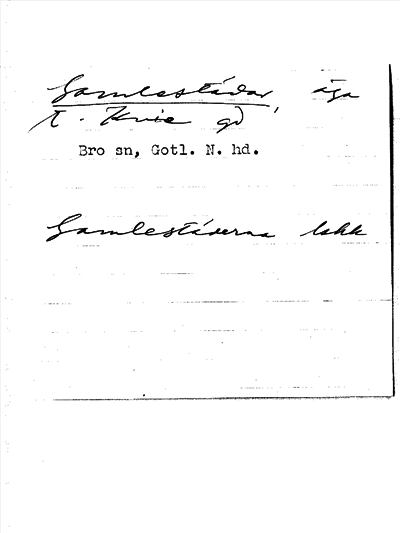 Gamlestádar, äga
t. Kvie gd
Bro sn, Gotl. N. hd.
Gamlestáderna lskk